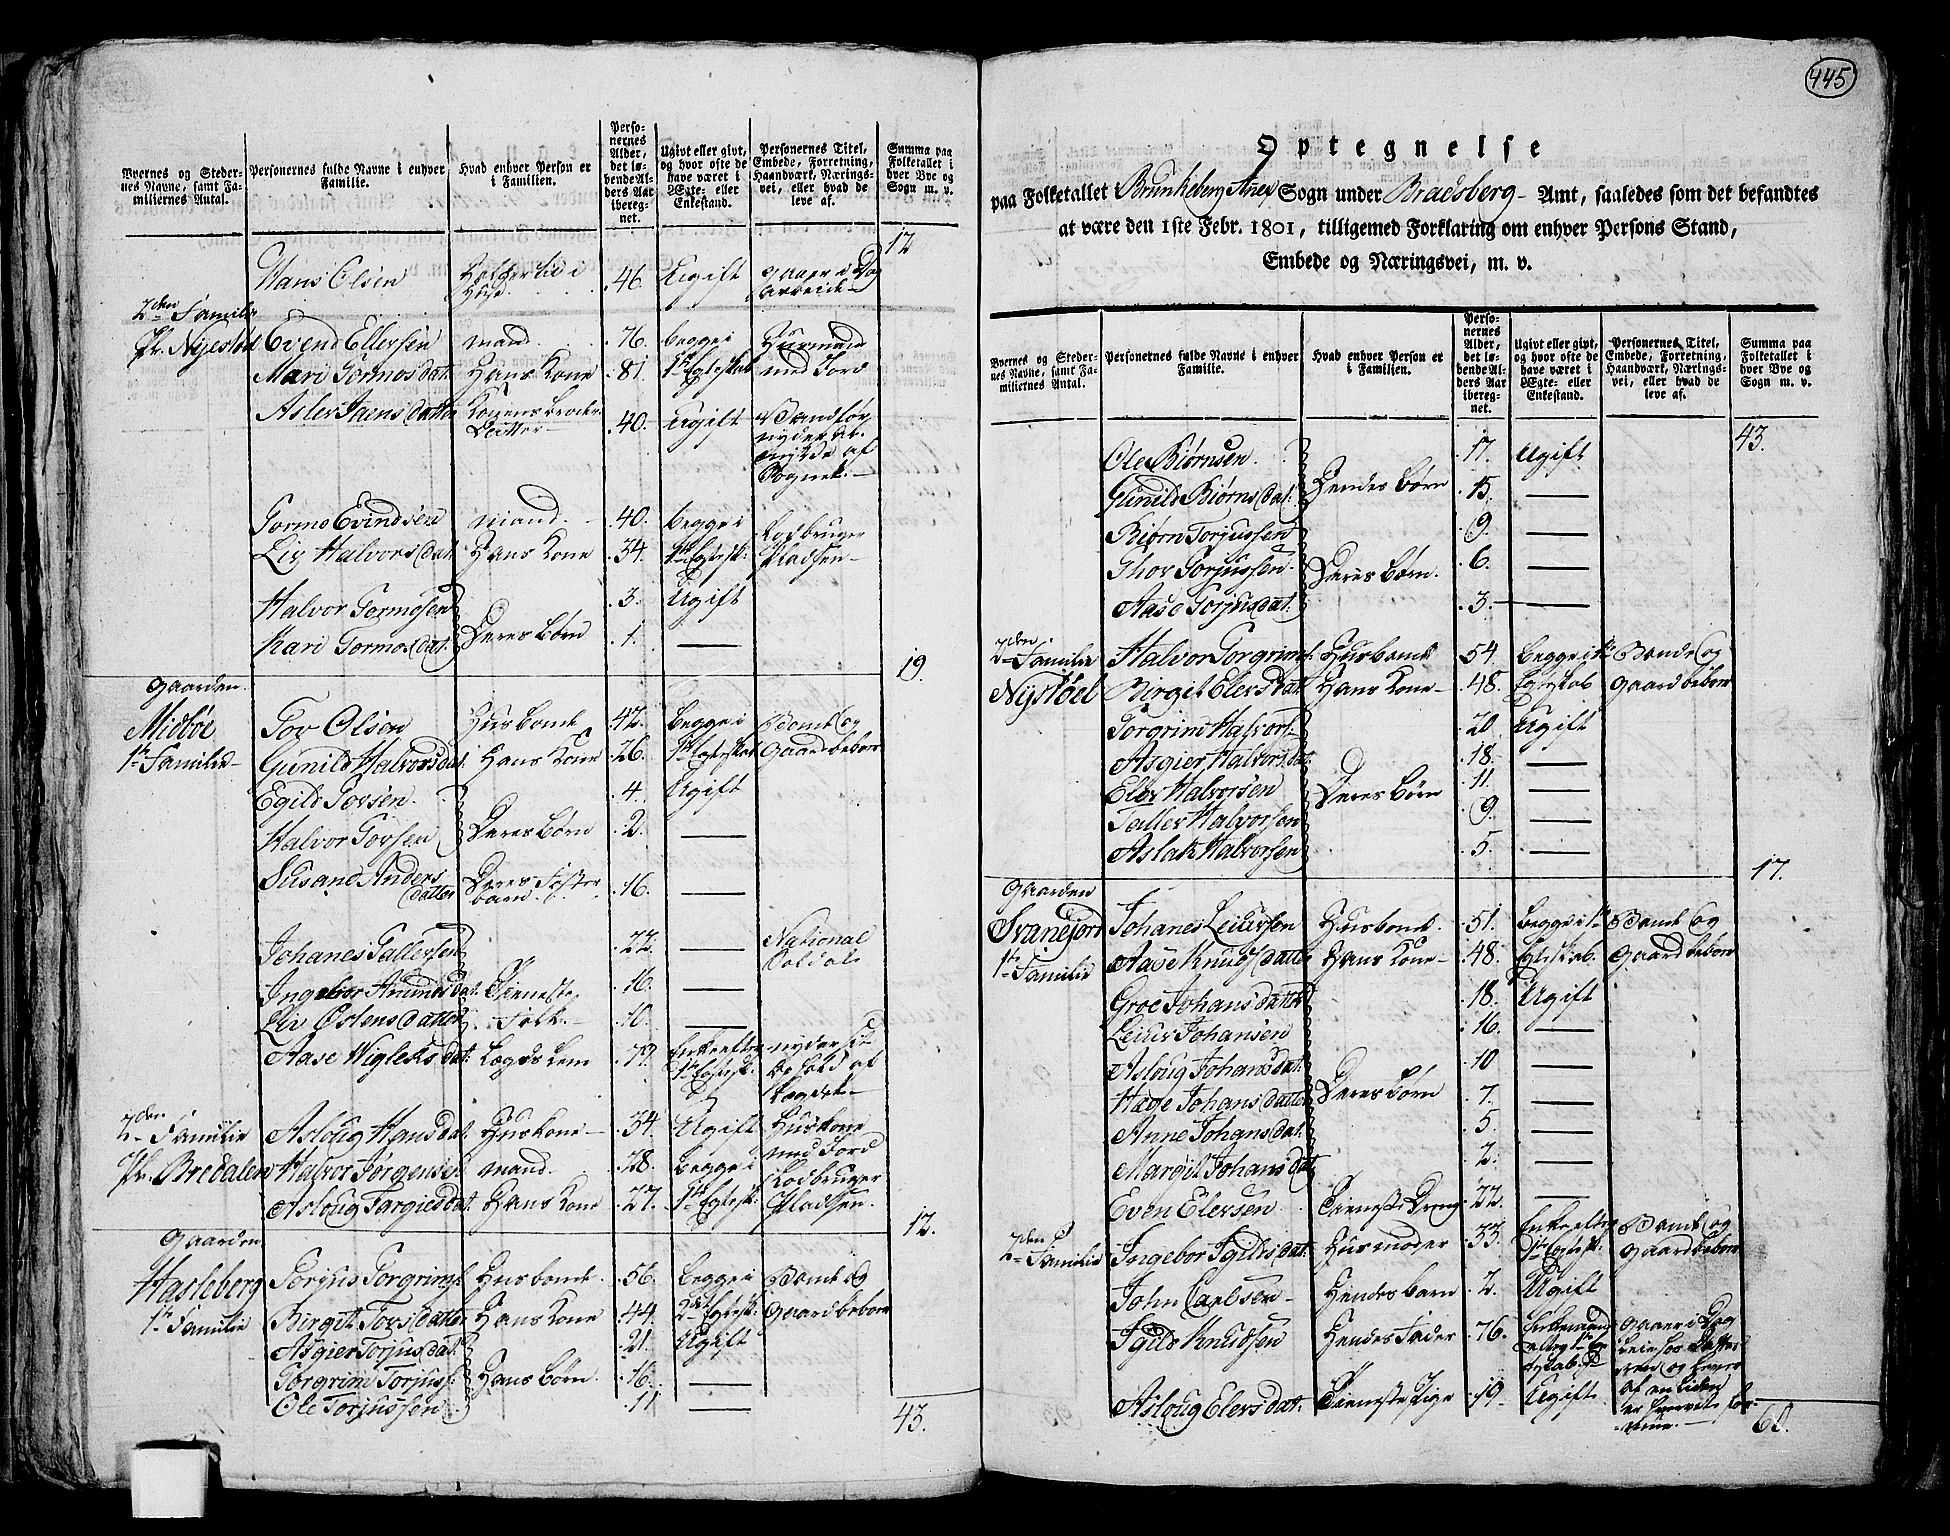 Byernes og Steder-
nes Navne, samt Fa-
miliernes Antal.
Personernes fulde Navne i enhver
Familie.
Hvad enhver Person er
i Familien.
Perso-
nernes
Alder,
det lø-
bende Al-
ders Aar
ibereg-
net.
Ugivt eller givt,
og hvor ofte de
have været i
Ægte- eller
Enkestand.
Personernes Titel,
Embede, Forretning,
Haandværk, Nærings-
vei, eller hvad de
leve af.
Summa paa
Folketallet i
hver Bye og
Sogn m. v.
12
Hans Olsen 46. Ugift gaaer i Dag
arbeide
2den Familie
Pl. Nyestøel Evend Ellefsen mand. 76. begge i Huusmand
Mari Tormosdat. Hans Kone 81. 1te Egteskab med Jord
Datter 40. Ugift
nyder
af
Sognet.
Tormo Evindsen mand. 40. begge i Jordbruger
Liv Halvorsdat. Hans Kone 34. 1te Egtesk: Pladsen
Halvor Tormosen 3. Ugift
Deres Børn
Kari Tormosdat. 1. —
19.
Gaarden
Midbøe Tov Olsen Husbonde 42. Begge i Bonde og
1te Familie Gunild Halvorsdat. Hans Kone 26. 1te Egteskab Gaardbeboer
Egild Tovsen. 4. Ugift
Halvor Tovsen Deres Børn 2. —
Susand Anders Deres Foster
datter barn. 16. —
Johanes Tallefsen 22. — National
Soldat
Ingebor Amundsdat. Tieneste 16. —
Liv Østensdatter Folk. 10. —
Aase Wigleksdat. Lægds Lem 79. Enke efter nyder sit
1te Egtesk: Ophold af
Lægdet
2den Familie Asloug Hansdat. Huskone 34. Ugift Huskone
med Jord
Pl. Bredalen Halvor Jørgensen mand. 28. Begge i Jordbruger
Asloug Targiesdat. Hans Kone 27. 1te Egtesk: Pladsen.
12.
Gaarden
Hasleberg Torjus Torgrims. Husbonde 56. Begge i Bonde og
1te Familie Birgit Torsdatter Hans Kone 44. 2det Egtesk: Gaardbeboer
Asgier Torjusdat. 21. Ugift
Torgrim Torjus. Hans Børn. 16. —
Ole Torjussen 11 —
43.
445
Optegnelse
paa Folketallet i Brunkeberg Anex Sogn under Bradsberg Amt, saaledes som det befandtes
at være den 1ste Febr. 1801, tilligemed Forklaring om enhver Persons Stand,
Embede og Næringsvei, m. v.
Byernes og Steder-
nes Navne, samt Fa-
miliernes Antal.
Personernes fulde Navne i enhver
Familie.
Hvad enhver Person er
i Familien.
Perso-
nernes
Alder,
det lø-
bende Al-
ders Aar
ibereg-
net.
Ugivt eller givt,
og hvor ofte de
have været i
Ægte- eller
Enkestand.
Personernes Titel,
Embede, Forretning,
Haandværk, Nærings-
vei, eller hvad de
leve af.
Summa paa
Folketallet i
hver Bye og
Sogn m. v.
43.
Ole Biørnsen. 17. Ugift
Hendes Børn
Gunild Biørnsdat: 15. —
Biørn Torjussen 9. —
Thor Torjussen. Deres Børn. 6. —
Aase Torjusdat. 3. —
2den Familie Halvor Torgrims. Husbonde 54 Begge i 1te Bonde og
Nystøel Birgit Elefsdat. Hans Kone 48. Egteskab Gaardbeboer
Torgrim Halvors. 20 Ugift
Asgier Halvorsdat. 18. —
Elev Halvorsen Deres Børn 11. —
Tallev Halvorsen 9. —
Aslak Halvorsen 5. —
17.
Gaarden
Svanejord Johanes Leidufsen Husbonde. 51. Begge i 1te Bonde og
1te Familie Aase Knudsdatter Hans Kone 48. Egteskab. Gaardbeboer
Groe Johansdatter 18. Ugift
Johansen 16. —
Aslaug Johansdat. 10 —
Hæge Johansdatter Deres Børn 7. —
Anne Johansdat. 5. —
Margit Johansdat. 2. —
Even Elefsen Tieneste Dreng 22. —
2den Familie Ingebor Egildsdat. Husmoder 33. Enke efter Bonde og
1te Egtesk: Gaardbeboer
John Carlsen Hendes barn 2. Ugift
Egild Knudsen Hendes Fader 76. Enkemand gaaer i Dag
Leie
og lever
af en liden
Aslaug Elefsdat. Tieneste Pige 19 Ugift
60.